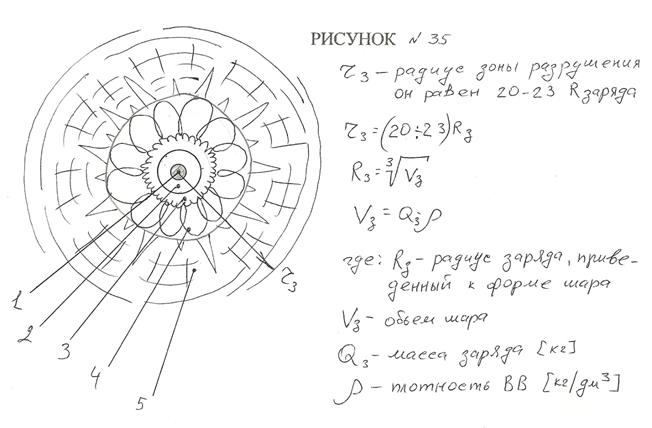 РИСУНОК № 35
τз – радиус зоны разрушения
он равен 20-23 Rзаряда
τз = (20÷23)Rз
Rз = ∛Vз
Vз = Qз÷ρ
где: Rз – радиус заряда, приве-
денный к форме шара
Vз – объем шара
Qз – масса заряда [кг]
ρ – плотность ВВ [кг/дм³]
τз
1
2
3
4
5